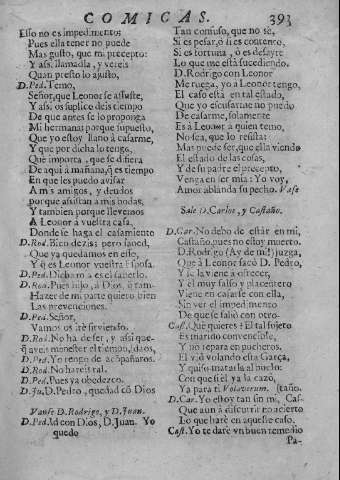 COMICAS. 393
Esso no es impedimento:
Pues ella tener no puede
Mas gusto, que mi precepto:
Y assi llamadla, y vereis
Quan presto lo ajusto,
D. Ped. Temo,
Señor, que Leonor se assuste,
Y assi os suplico deis tiempo
De que antes se lo proponga
Mi hermana; porque supuesto,
Que yo estoy llano à casarme,
Y que por dicha lo tengo,
Què importa, que se difiera
De aqui à mañana, q̃ es tiempo
En que les puedo avisar
A mis amigos, y deudos
porque assistan à mis bodas,
Y tambien porque llevemos
A Leonor à vuestra casa,
Donde se haga el casamiento
D. Rod. Bien dezis; pero sabed,
Que ya quedamos en esso,
Y q̃ es Leonor vuestra Esposa.
D. Ped. Dicha mia es el saberlo.
D. Rod. Pues hijo, à Dios, q̃ tambien
Hazer de mi parte quiero
Las prevenciones.
D. Ped. Señor,
Vamos os irè sirviendo.
D. Rod. No ha de ser, y assi quedaos,
q̃ aveis menester el tiempo,
D. Ped. Yo tengo de acompañaros.
D. Rod. No hareis tal.
D. Ped. Pues ya obedezco.
D. Ju. D. Pedro, quedad cõ Dios
Vanse D. Rodrigo, y D. Juan.
D. Ped. Ad con Dios, D. Juan. Yo
quedo
Tan confuso, que no sè,
Si es pesar, ò si es contento,
Si es fortuna, ò es desayre
Lo que me està sucediendo.
D. Rodrigo con Leonor
Me ruega, yo à Leonor tengo,
El caso està en tal estado,
Que yo escusarme no puedo
De casarme, solamente
Es à Leonor à quien temo,
No sea, que lo resista:
Mas puede ser, que ella viendo
El estado de las cosas,
Y de su padre el precepto,
Venga en ser mia: Yo voy,
Amor ablanda su pecho. Vase
Sale D. Carlos, y Castaño.
D. Car. No debo de estàr en mi,
Castaño, pues no estoy muerto.
D. Rodrigo (Ay de mi!) juzga,
Que à Leonor sacò D. Pedro,
Y se la viene à ofrecer,
Y èl muy falso y placentero
Viene en casarse con ella,
Sin ver el impedimento
De que se saliò con otro.
Cast. Què quieres? El tal sujeto
Es marido convenible,
Y no repara en pucheros,
El viò volando esta Garça,
Y quiso matarla al buelo:
Con que si èl ya la cazò,
Ya para ti Volaverunt. staño.
D. Car. Yo estoy tan sin mi, Ca-
Que aun à discurrir no acierto
Lo que harè en aqueste caso.
Cast. Yo te darè vn buen remedio
Pa-